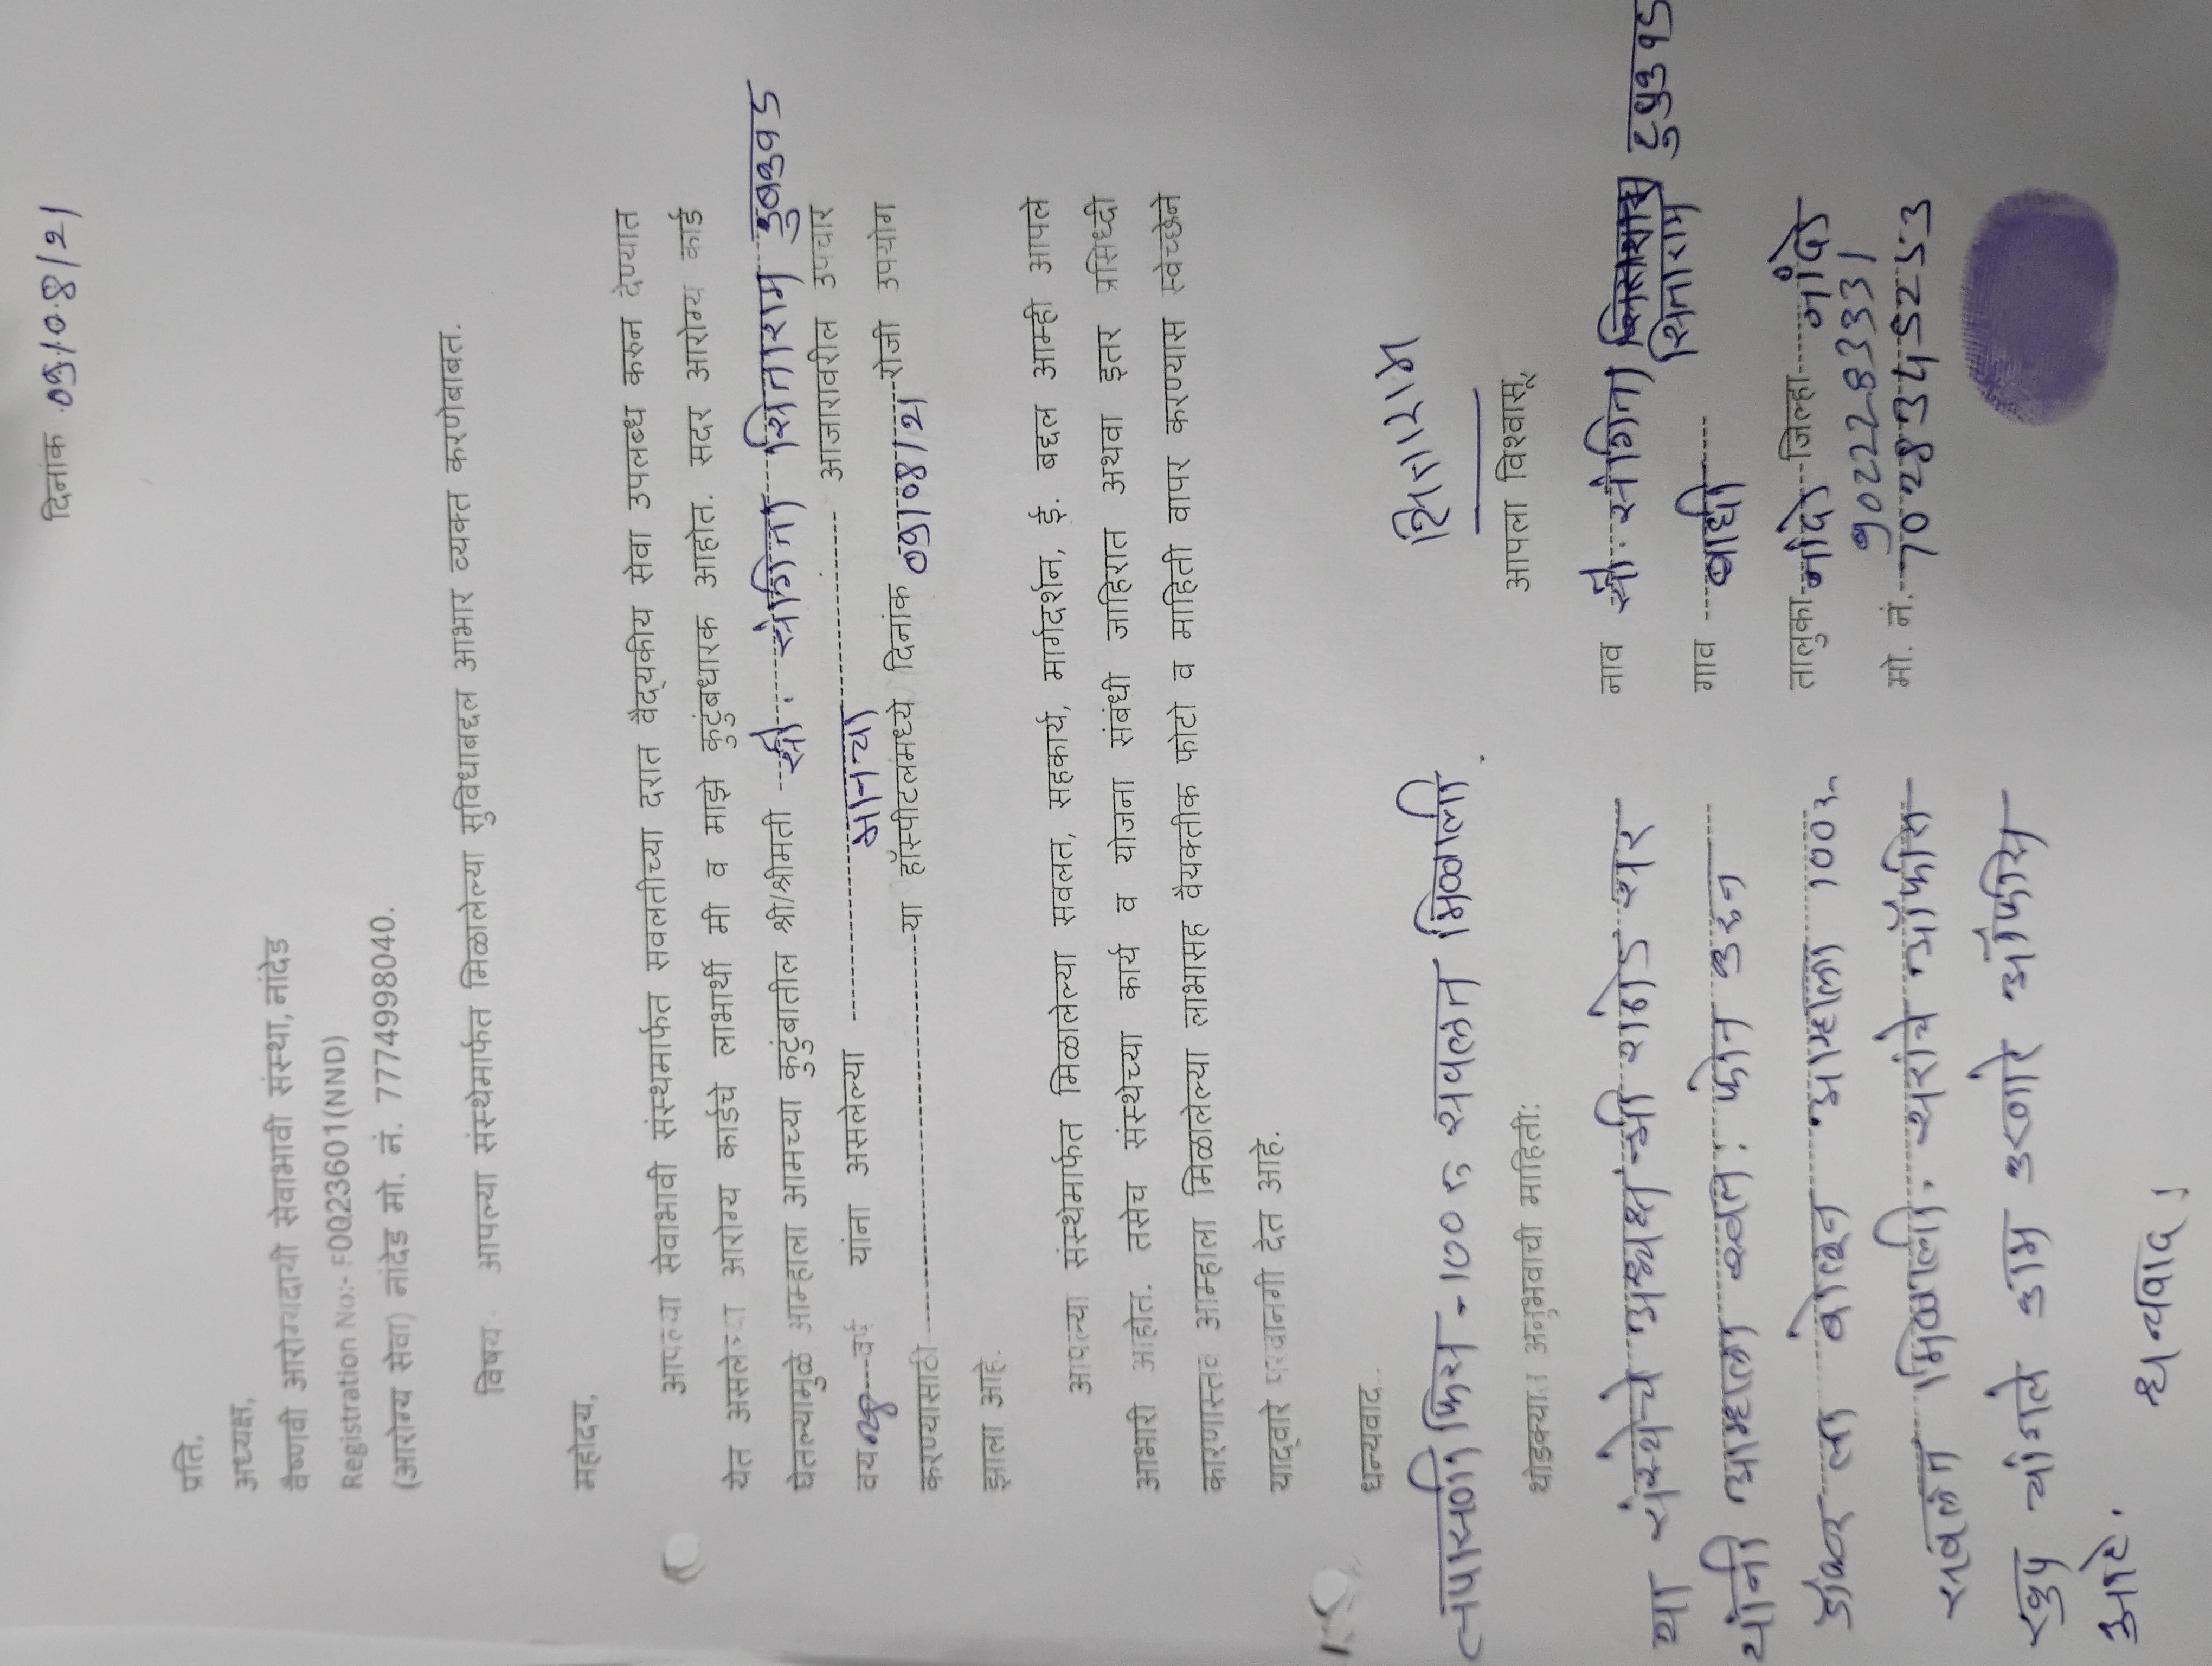 दिनांक ०९/०४/२१
प्रति,
अध्यक्ष,
वैष्णवी आरोग्यदायी सेवाभावी संस्था, नांदेड
Registration No:- F0023601(NND)
(आरोग्य सेवा) नांदेड मो. नं. 7774998040.
विषय:- आपल्या संस्थेमार्फत मिळालेल्या सुविधाबद्दल आभार व्यक्त करणेबाबत.
महोदय,
आपल्या सेवाभावी संस्थेमार्फत सवलतीच्या दरात वैद्यकीय सेवा उपलब्ध करुन देण्यात
येत असलेल्या आरोग्य कार्डचे लाभार्थी मी व माझे कुटुंबधारक आहोत. सदर आरोग्य कार्ड
घेतल्यामुळे आम्हाला आमच्या कुटुंबातील श्री/श्रीमती सौ. संगिता सिताराम
वय ---वर्ष यांना असलेल्या आजारावरील उपचार
करण्यासाठी या हॉस्पीटलमध्ये दिनांक ०९/०४/२१ रोजी उपयोग
झाला आहे.
आपल्या संस्थेमार्फत मिळालेल्या सवलत, सहकार्य, मार्गदर्शन, ई. बद्दल आम्ही आपले
आभारी आहोत. तसेच संस्थेच्या कार्य व योजना संबंधी जाहिरात अथवा इतर प्रसिध्दी
कारणास्तव आम्हाला मिळालेल्या लाभासह वैयक्तीक फोटो व माहिती वापर करण्यास स्वेच्छेने
याद्वारे परवानगी देत आहे.
धन्यवाद..
तपासणी फिस - 100 रु सवलत मिळाली.
सिताराम
आपला विश्वासू,
थोडक्यात अनुभवाची माहिती:
या संस्थेचे अध्यक्ष श्री राठोड सर
यांनी आम्हाला स्वतः फोन करुन
डॉक्टर ला बोलून आम्हाला 100रु
सवलत मिळाली. सरांचे ऑफीस
खुप चांगले काम करणारे ऑफिस
आहे.
धन्यवाद ।
नाव सौ. संगिता सिताराम
गाव
तालुका नांदेड जिल्हा नांदेड
9022283331
मो. नं. 7028345253